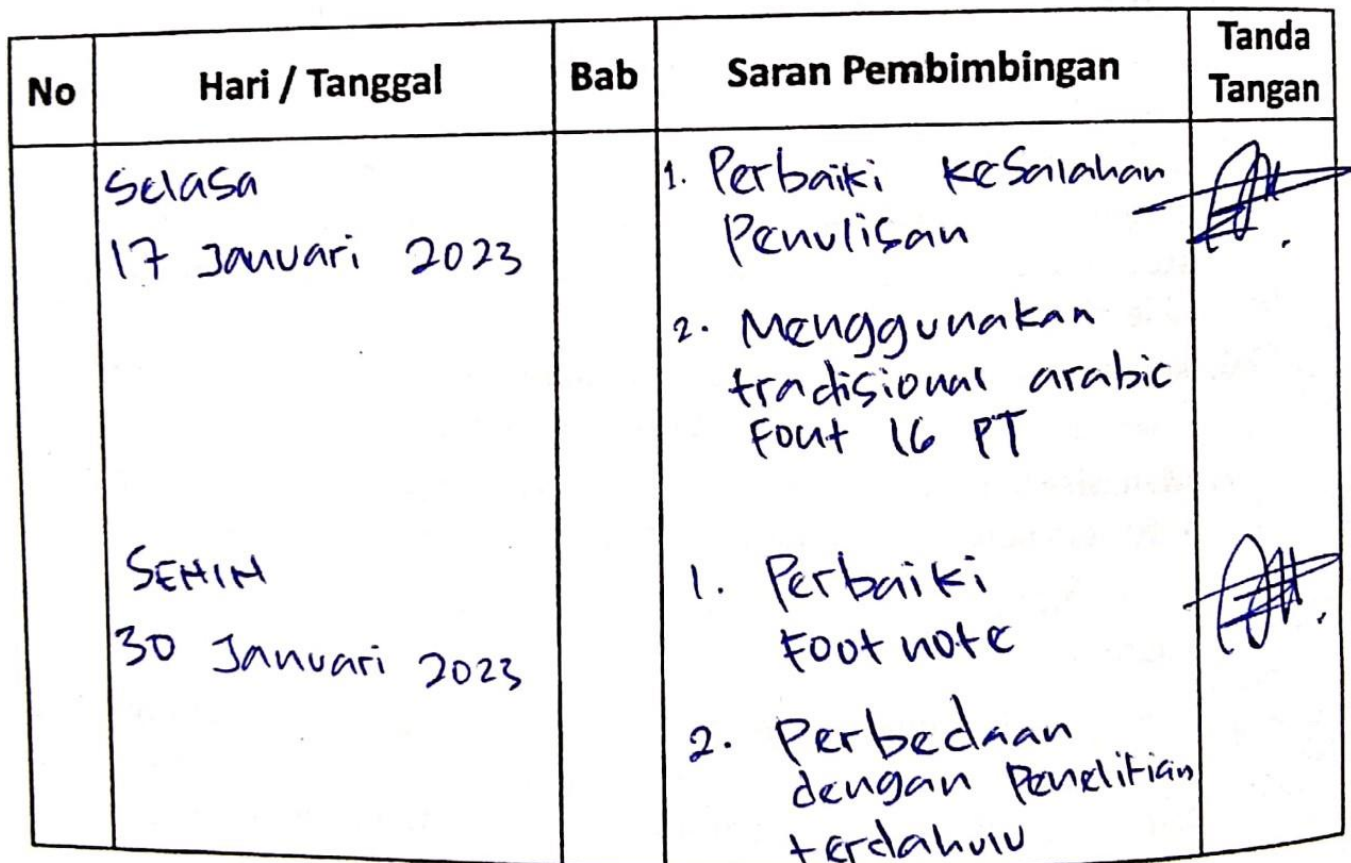 No Hari / Tanggal Bab Saran Pembimbingan Tanda Tangan
Selasa
17 Januari 2023
1. Perbaiki Kesalahan
Penulisan
2. Menggunakan
tradisional arabic
Font 16 PT
SENIN
30 Januari 2023
1. Perbaiki
Foot note
2. Perbedaan
dengan Penelitian
terdahulu